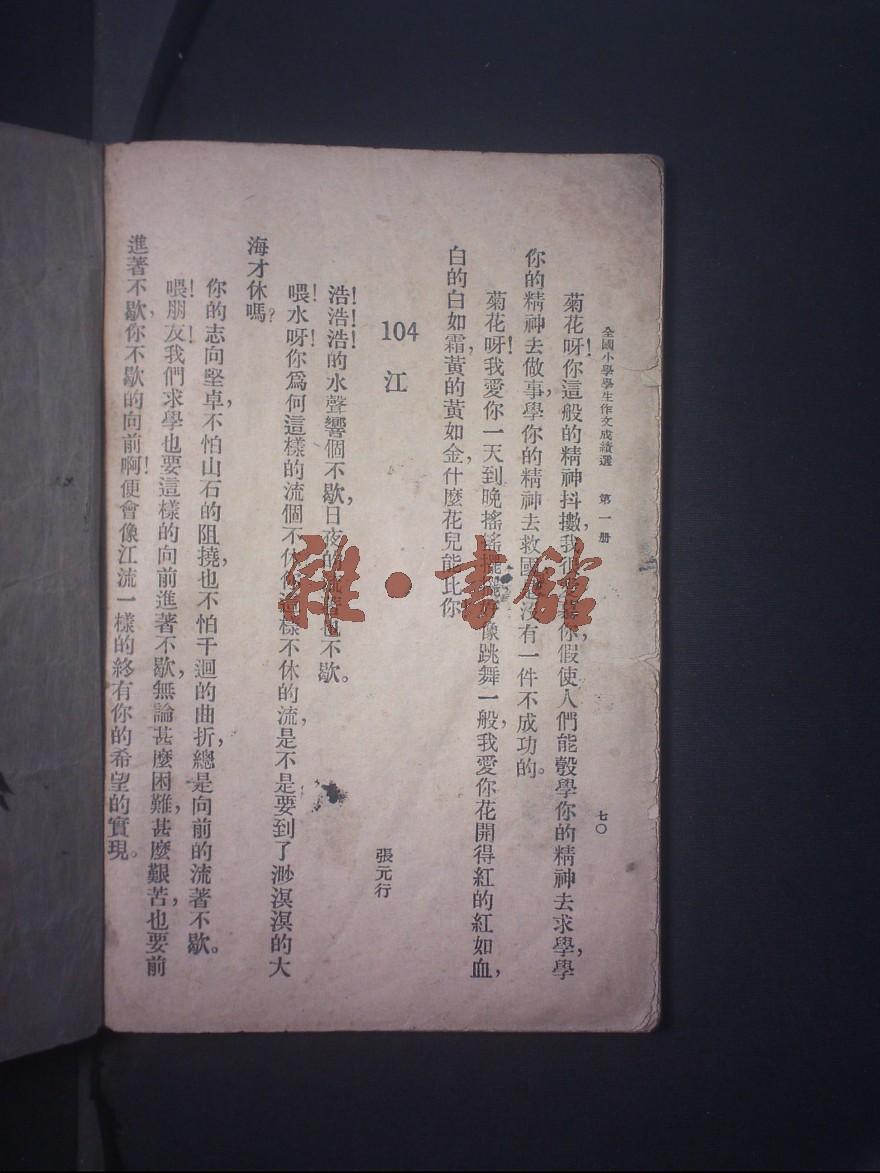 全國小學學生作文成績選 第一册 七〇
菊花呀!你這般的精神抖擻,我很 你,假使人們能彀學你的精神去求學,學
你的精神去做事,學你的精神去救國, 沒有一件不成功的。
菊花呀!我愛你一天到晚搖搖擺擺,好像跳舞一般,我愛你花開得紅的紅如血,
白的白如霜,黃的黃如金,什麼花兒能比你
104 江 張元行
浩!浩!浩!的水聲響個不歇,日夜的 不歇。
喂!水呀!你爲何這樣的流個不休,你這樣不休的流,是不是要到了渺溟溟的大
海才休嗎?
你的志向堅卓,不怕山石的阻撓,也不怕千迴的曲折,總是向前的流著不歇。
喂!朋友!我們求學也要這樣的向前進著不歇,無論甚麼困難,甚麼艱苦,也要前
進著不歇,你不歇的向前啊!便會像江流一樣的終有你的希望的實現。
雜·書館